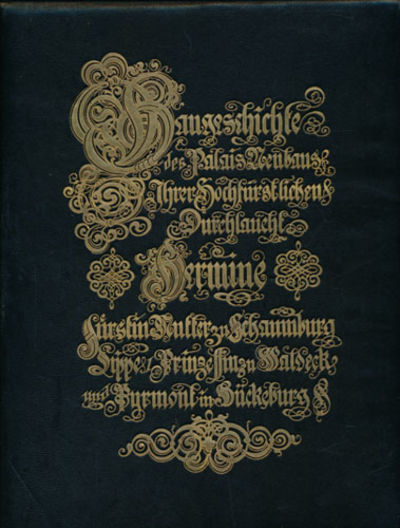 Baugeschichte
des Palais Neubaus
Ihrer Hochfürstlichen
Durchlaucht
Hermine
Fürstin Mutter zu Schaumburg
Lippe Prinzessin zu Waldeck
und Pyrmont in Bückeburg